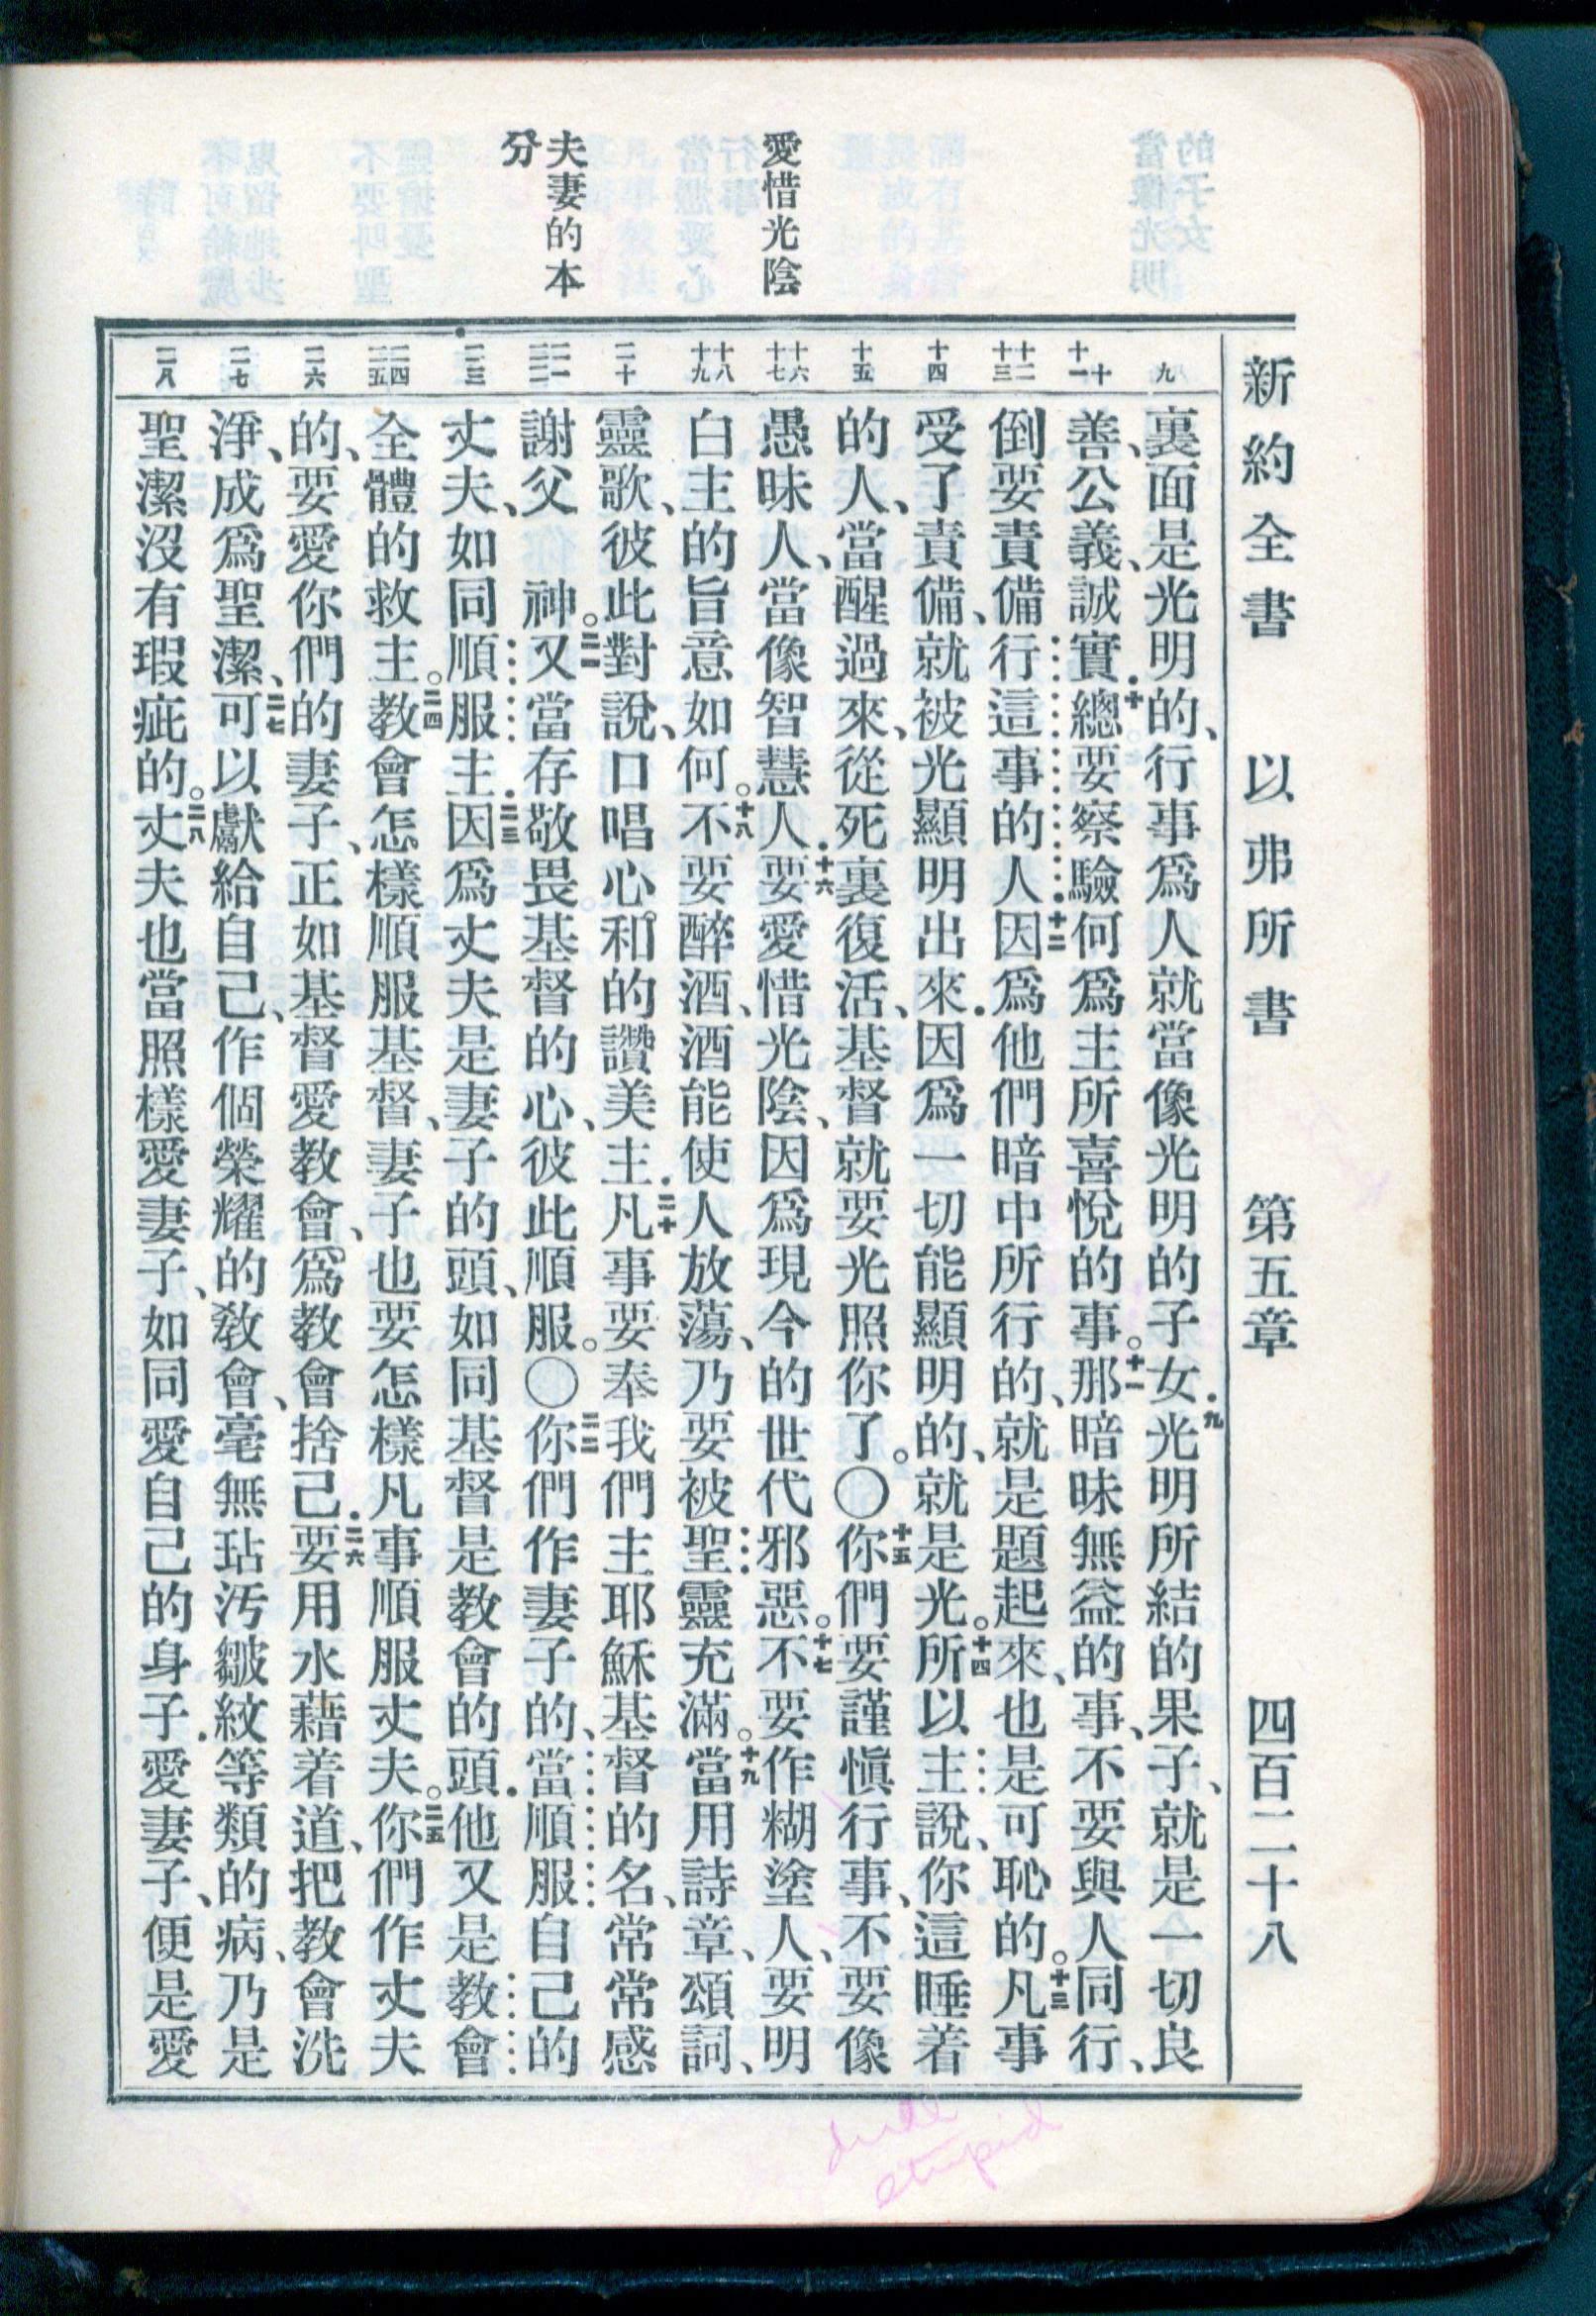 新約全書 以弗所書 第五章 四百二十八
愛惜光陰
夫妻的本
分
九
十
十一
十二
十三
十四
十五
十六
十七
十八
十九
二十
二一
二二
二三
二四
二五
二六
二七
二八
裏面是光明的、行事爲人就當像光明的子女．九光明所結的果子、就是一切良
善、公義、誠實．十總要察驗何爲主所喜悅的事。十一那暗昧無益的事、不要與人同行、
倒要責備行這事的人．十二因爲他們暗中所行的、就是題起來、也是可恥的。十三凡事
受了責備、就被光顯明出來．因爲一切能顯明的、就是光。十四所以主說、你這睡着
的人、當醒過來、從死裏復活、基督就要光照你了。〇十五你們要謹愼行事、不要像
愚昧人、當像智慧人．十六要愛惜光陰、因爲現今的世代邪惡。十七不要作糊塗人、要明
白主的旨意如何。十八不要醉酒、酒能使人放蕩、乃要被聖靈充滿。十九當用詩章、頌詞、
靈歌、彼此對說、口唱心和的讚美主．二十凡事要奉我們主耶穌基督的名、常常感
謝父 神。二一又當存敬畏基督的心、彼此順服。〇二二你們作妻子的、當順服自己的
丈夫、如同順服主．二三因爲丈夫是妻子的頭、如同基督是教會的頭．他又是教會
全體的救主。二四教會怎樣順服基督、妻子也要怎樣凡事順服丈夫。二五你們作丈夫
的、要愛你們的妻子、正如基督愛教會、爲教會捨己．二六要用水藉着道、把教會洗
淨、成爲聖潔、二七可以獻給自己、作個榮耀的教會、毫無玷汚皺紋等類的病、乃是
聖潔沒有瑕疵的。二八丈夫也當照樣愛妻子、如同愛自己的身子．愛妻子、便是愛
dull
stupid